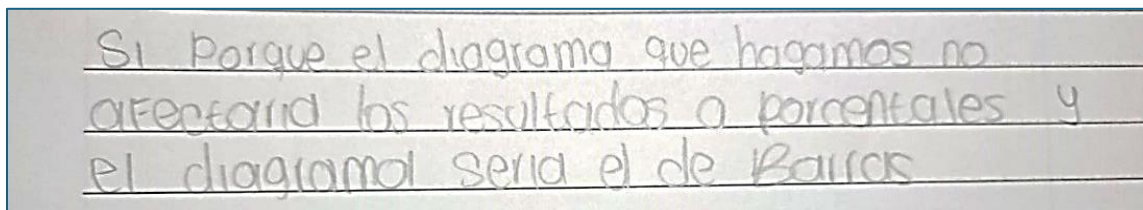 Si Porque el diagrama que hagamos no
afectaria los resultados o porcentales y
el diagrama seria el de Barras